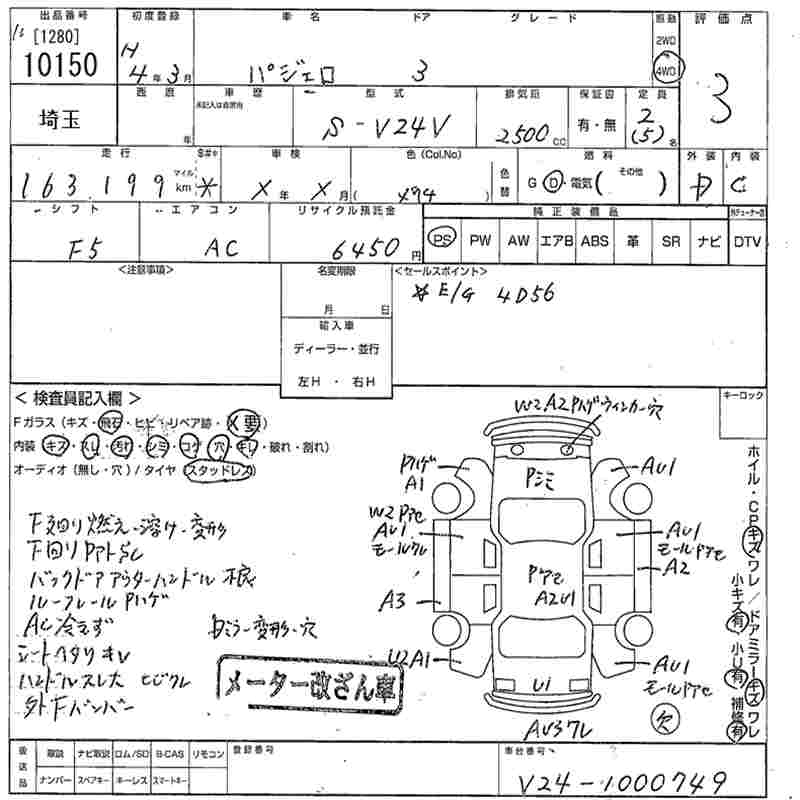 出品番号 初度登録 車名 ドア グレード 駆動 評価点
[1280]
10150
H 4年3月 パジェロ 3 2WD 4WD 3
埼玉
西暦 年 車歴 未記入は自家用 型式 排気量 保証書 定員
S-V24V 2500cc 有・無 2(5)名
走行 $#* 車検 色(Col.No) 色替 燃料 外装 内装
163,199 マイル km * X年 X月 ( ) G・D・電気( その他 ) D C
シフト エアコン リサイクル預託金 純正装備品
F5 AC 6450円 PS PW AW エアB ABS 革 SR ナビ DTV
<注意事項> 名変期限 <セールスポイント>
月 日 ☆ E/G 4D56
輸入車
ディーラー・並行
左H・右H
<検査員記入欄> キーロック
Fガラス(キズ・飛石・ヒビ・リペア跡・X要)
内装(キズ・スレ・汚れ・シミ・コゲ・穴・キレ・破れ・割れ)
オーディオ(無し・穴)/タイヤ(スタッドレス)
W2 A2 Pハゲ ウィンカー穴
Pハゲ A1 Pシミ AU1
W2 Pアセ AU1 モールワレ AU1 モールPアセ A2
Pアセ A2U1
A3
U2A1 AU1 モールPアセ
U1 欠
AU3ワレ
F廻り燃え・溶け・変形
下回りPアトSC
バックドアアウターハンドル不良
ルーフレールPハゲ
AC冷えず ミラー変形・穴
シートヘタリキレ
ハンドルスレ大
外Fバンパー
メーター改ざん車
ホイル・CPキズワレ/ドアミラーキズワレ
小キズ有 小U有 補修有
後送品 取説 ナビ取説 ロム/SD B-CAS リモコン 登録番号 車台番号
ナンバー スペアキー キーレス スマートキー V24-1000749